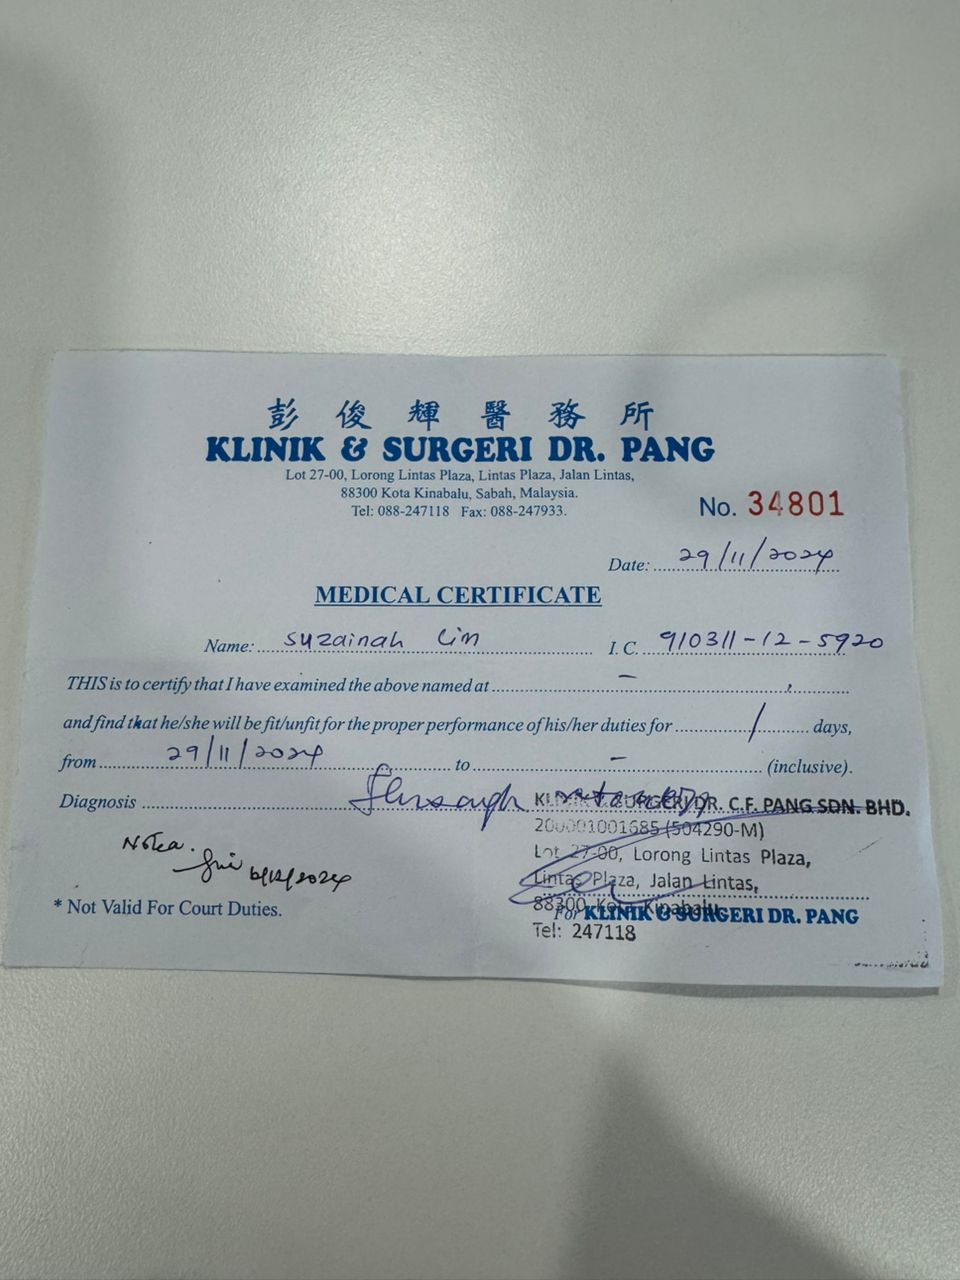 彭俊輝醫務所
KLINIK & SURGERI DR. PANG
Lot 27-00, Lorong Lintas Plaza, Lintas Plaza, Jalan Lintas,
88300 Kota Kinabalu, Sabah, Malaysia.
Tel: 088-247118 Fax: 088-247933.
No. 34801
Date: 29/11/2024
MEDICAL CERTIFICATE
Name: Suzainah Lim I. C. 910311-12-5920
THIS is to certify that I have examined the above named at -
and find that he/she will be fit/unfit for the proper performance of his/her duties for 1 days,
from 29/11/2024 to - (inclusive).
Diagnosis
KLINIK & SURGERI DR. C.F. PANG SDN. BHD.
200001001685 (504290-M)
Lot 27-00, Lorong Lintas Plaza,
Lintas Plaza, Jalan Lintas,
88300 Kota Kinabalu
Tel: 247118
For KLINIK & SURGERI DR. PANG
* Not Valid For Court Duties.